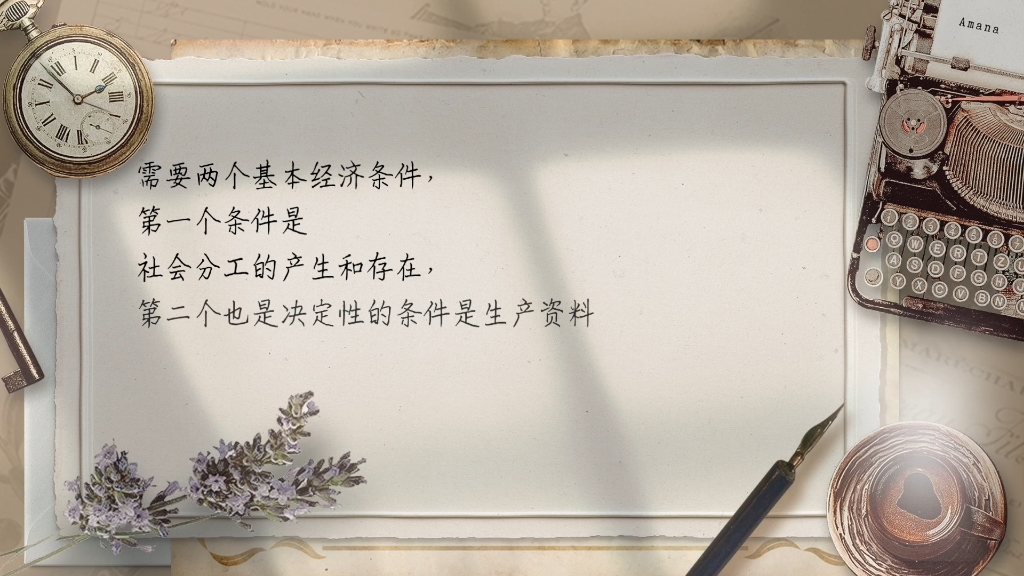 需要两个基本经济条件，
第一个条件是
社会分工的产生和存在，
第二个也是决定性的条件是生产资料
Amana